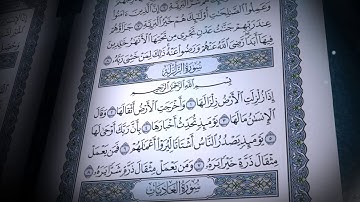 وَعَمِلُوا۟ ٱلصَّـٰلِحَـٰتِ أُو۟لَـٰٓئِكَ هُمْ خَيْرُ ٱلْبَرِيَّةِ ٧ جَزَآؤُهُمْ
عِندَ رَبِّهِمْ جَنَّـٰتُ عَدْنٍ تَجْرِى مِن تَحْتِهَا ٱلْأَنْهَـٰرُ خَـٰلِدِينَ
فِيهَآ أَبَدًا رَّضِىَ ٱللَّهُ عَنْهُمْ وَرَضُوا۟ عَنْهُ ذَٰلِكَ لِمَنْ خَشِىَ رَبَّهُۥ ٨
سُورَةُ الزَّلْزَلَةِ
بِسْمِ ٱللَّهِ ٱلرَّحْمَـٰنِ ٱلرَّحِيمِ
إِذَا زُلْزِلَتِ ٱلْأَرْضُ زِلْزَالَهَا ١ وَأَخْرَجَتِ ٱلْأَرْضُ أَثْقَالَهَا ٢ وَقَالَ
ٱلْإِنسَـٰنُ مَا لَهَا ٣ يَوْمَئِذٍ تُحَدِّثُ أَخْبَارَهَا ٤ بِأَنَّ رَبَّكَ أَوْحَىٰ لَهَا
٥ يَوْمَئِذٍ يَصْدُرُ ٱلنَّاسُ أَشْتَاتًا لِّيُرَوْا۟ أَعْمَـٰلَهُمْ ٦ فَمَن يَعْمَلْ
مِثْقَالَ ذَرَّةٍ خَيْرًا يَرَهُۥ ٧ وَمَن يَعْمَلْ مِثْقَالَ ذَرَّةٍ شَرًّا يَرَهُۥ ٨
سُورَةُ العَادِيَاتِ